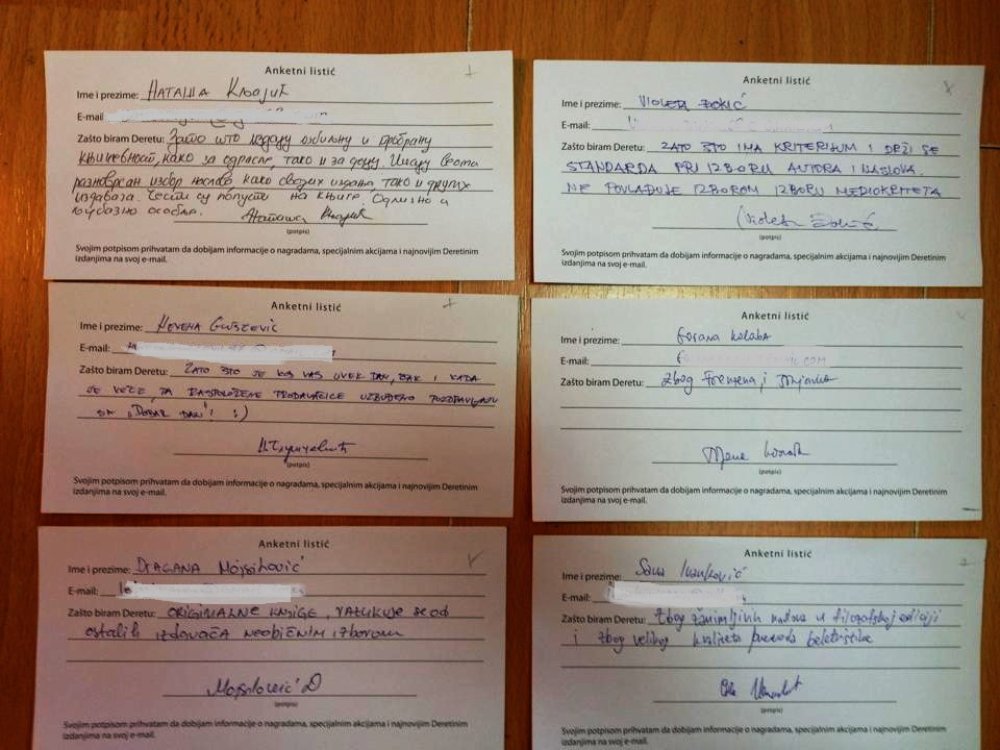 Anketni listić
Ime i prezime: НАТАША Књајић
E-mail
Zašto biram Deretu: Зато што издају озбиљну и пробрану
књижевност, како за одрасле, тако и за децу. Имају веома
разноврсан избор наслова како својих издања, тако и других
издавача. Чести су попусти на књиге. Одлично и
љубазно особље.
(potpis)
Svojim potpisom prihvatam da dobijam informacije o nagradama, specijalnim akcijama i najnovijim Deretinim
izdanjima na svoj e-mail.
Anketni listić
Ime i prezime: VIOLETA ĐOKIĆ
E-mail:
Zašto biram Deretu: ZATO ŠTO IMA KRITERIJUM I DRŽI SE
STANDARDA PRI IZBORU AUTORA I NASLOVA.
NE POVLAĐUJE IZBOROM IZBORU MEDIOKRITETA
(potpis)
Svojim potpisom prihvatam da dobijam informacije o nagradama, specijalnim akcijama i najnovijim Deretinim
izdanjima na svoj e-mail.
Anketni listić
Ime i prezime:
E-mail:
Zašto biram Deretu: ZATO ŠTO JE KOD VAS UVEK DAN, ČAK I KADA
JE VEČE, PA RASPOLOŽENE PRODAVAČICE UZBUĐENO POZDRAVLJAJU
SA „DOBAR DAN“! :)
(potpis)
Svojim potpisom prihvatam da dobijam informacije o nagradama, specijalnim akcijama i najnovijim Deretinim
izdanjima na svoj e-mail.
Anketni listić
Ime i prezime: Gorana
E-mail: .COM
Zašto biram Deretu: Zbog i
(potpis)
Svojim potpisom prihvatam da dobijam informacije o nagradama, specijalnim akcijama i najnovijim Deretinim
izdanjima na svoj e-mail.
Anketni listić
Ime i prezime: DRAGANA Mojsilović
E-mail:
Zašto biram Deretu: ORIGINALNE KNJIGE, RAZLIKUJE SE OD
ostalih izdavača neobičnim izborom
Mojsilović D
(potpis)
Svojim potpisom prihvatam da dobijam informacije o nagradama, specijalnim akcijama i najnovijim Deretinim
izdanjima na svoj e-mail.
Anketni listić
Ime i prezime: Sava Ivanković
E-mail:
Zašto biram Deretu: Zbog zanimljivih naslova u filozofskoj ediciji
i zbog velikog kvaliteta prevoda beletristike
(potpis)
Svojim potpisom prihvatam da dobijam informacije o nagradama, specijalnim akcijama i najnovijim Deretinim
izdanjima na svoj e-mail.